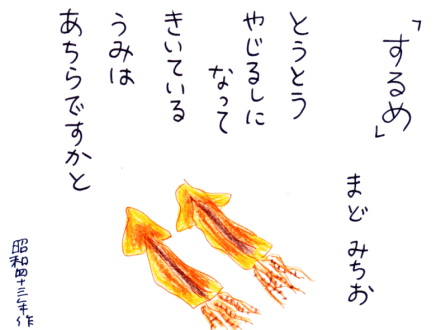 「するめ」
まど みちお
とうとう
やじるしに
なって
きいている
うみは
あちらですかと
昭和四十三年作